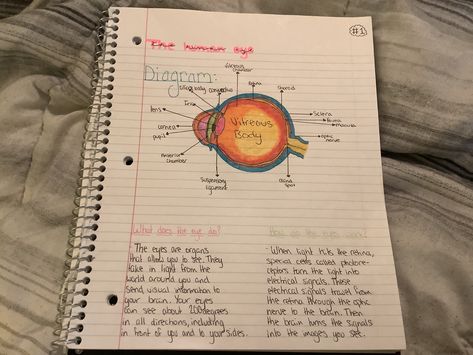 The human eye
#1
Diagram:
chamber
Retina
Choroid
Ciliary body
Iris
lens
Cornea
pupil
Anterior
chamber
Vitreous
Body
Sclera
Fovea
macula
optic
nerve
Suspensory
ligament
Blind
spot
What does the eye do?
The eyes are organs
that allow you to see. They
take in light from the
world around you and
send visual information to
your brain. Your eyes
can see about 200 degrees
in all directions, including
in front of you and to your sides.
How do the eyes work?
When light hits the retina,
special cells called photore-
ceptors turn the light into
electrical signals. These
electrical signals travel from
the retina through the optic
nerve to the brain. Then
the brain turns the signals
into the images you see.